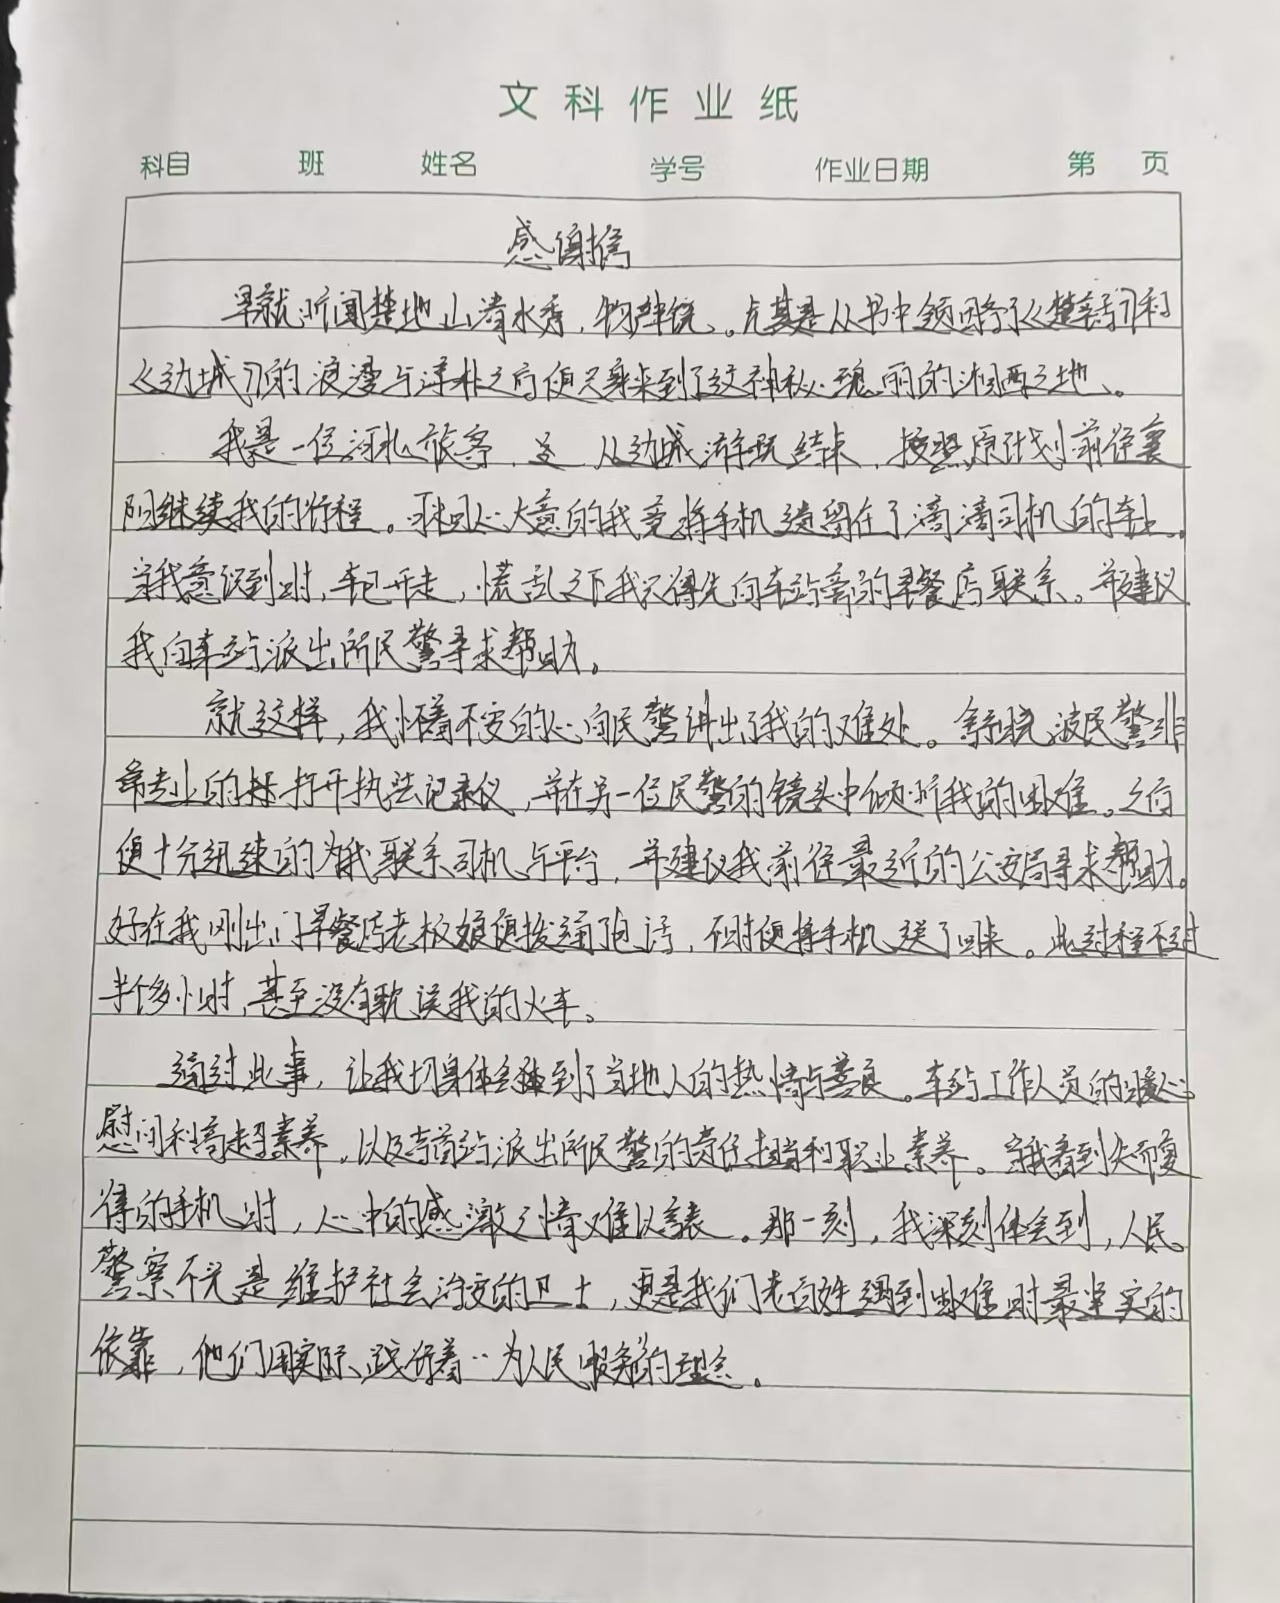 文科作业纸
科目 班 姓名 学号 作业日期 第 页
感谢信
早就听闻楚地山清水秀，物华饶。尤其是从书中领略了《楚辞》和
《边城》的浪漫与淳朴之后便只身来到了这神秘瑰丽的湘西之地。
我是一位河北旅客，从边城游玩结束，按照原计划前往襄
阳继续我的行程。可粗心大意的我竟将手机遗留在了滴滴司机的车上。
当我意识到时，车已开走，慌乱之下我只得先向车站旁的早餐店联系。并建议
我向车站派出所民警寻求帮助。
就这样，我怀着不安的心向民警讲出了我的难处。余晓波民警非
常专业的打开执法记录仪，并在另一位民警的镜头中倾听我的困难。之后
便十分迅速的为我联系司机与平台，并建议我前往最近的公安局寻求帮助。
好在我刚出门早餐店老板娘便拨通了电话，同时便将手机送了回来。此过程不过
半个多小时，甚至没有耽误我的火车。
通过此事，让我切身体会到了当地人的热情与善良。车站工作人员的暖心
慰问和高超素养，以及吉首站派出所民警的责任担当和职业素养。当我看到失而复
得的手机时，心中的感激之情难以言表。那一刻，我深刻体会到，人民
警察不光是维护社会治安的卫士，更是我们老百姓遇到困难时最坚实的
依靠，他们用实际践行着“为人民服务”的理念。